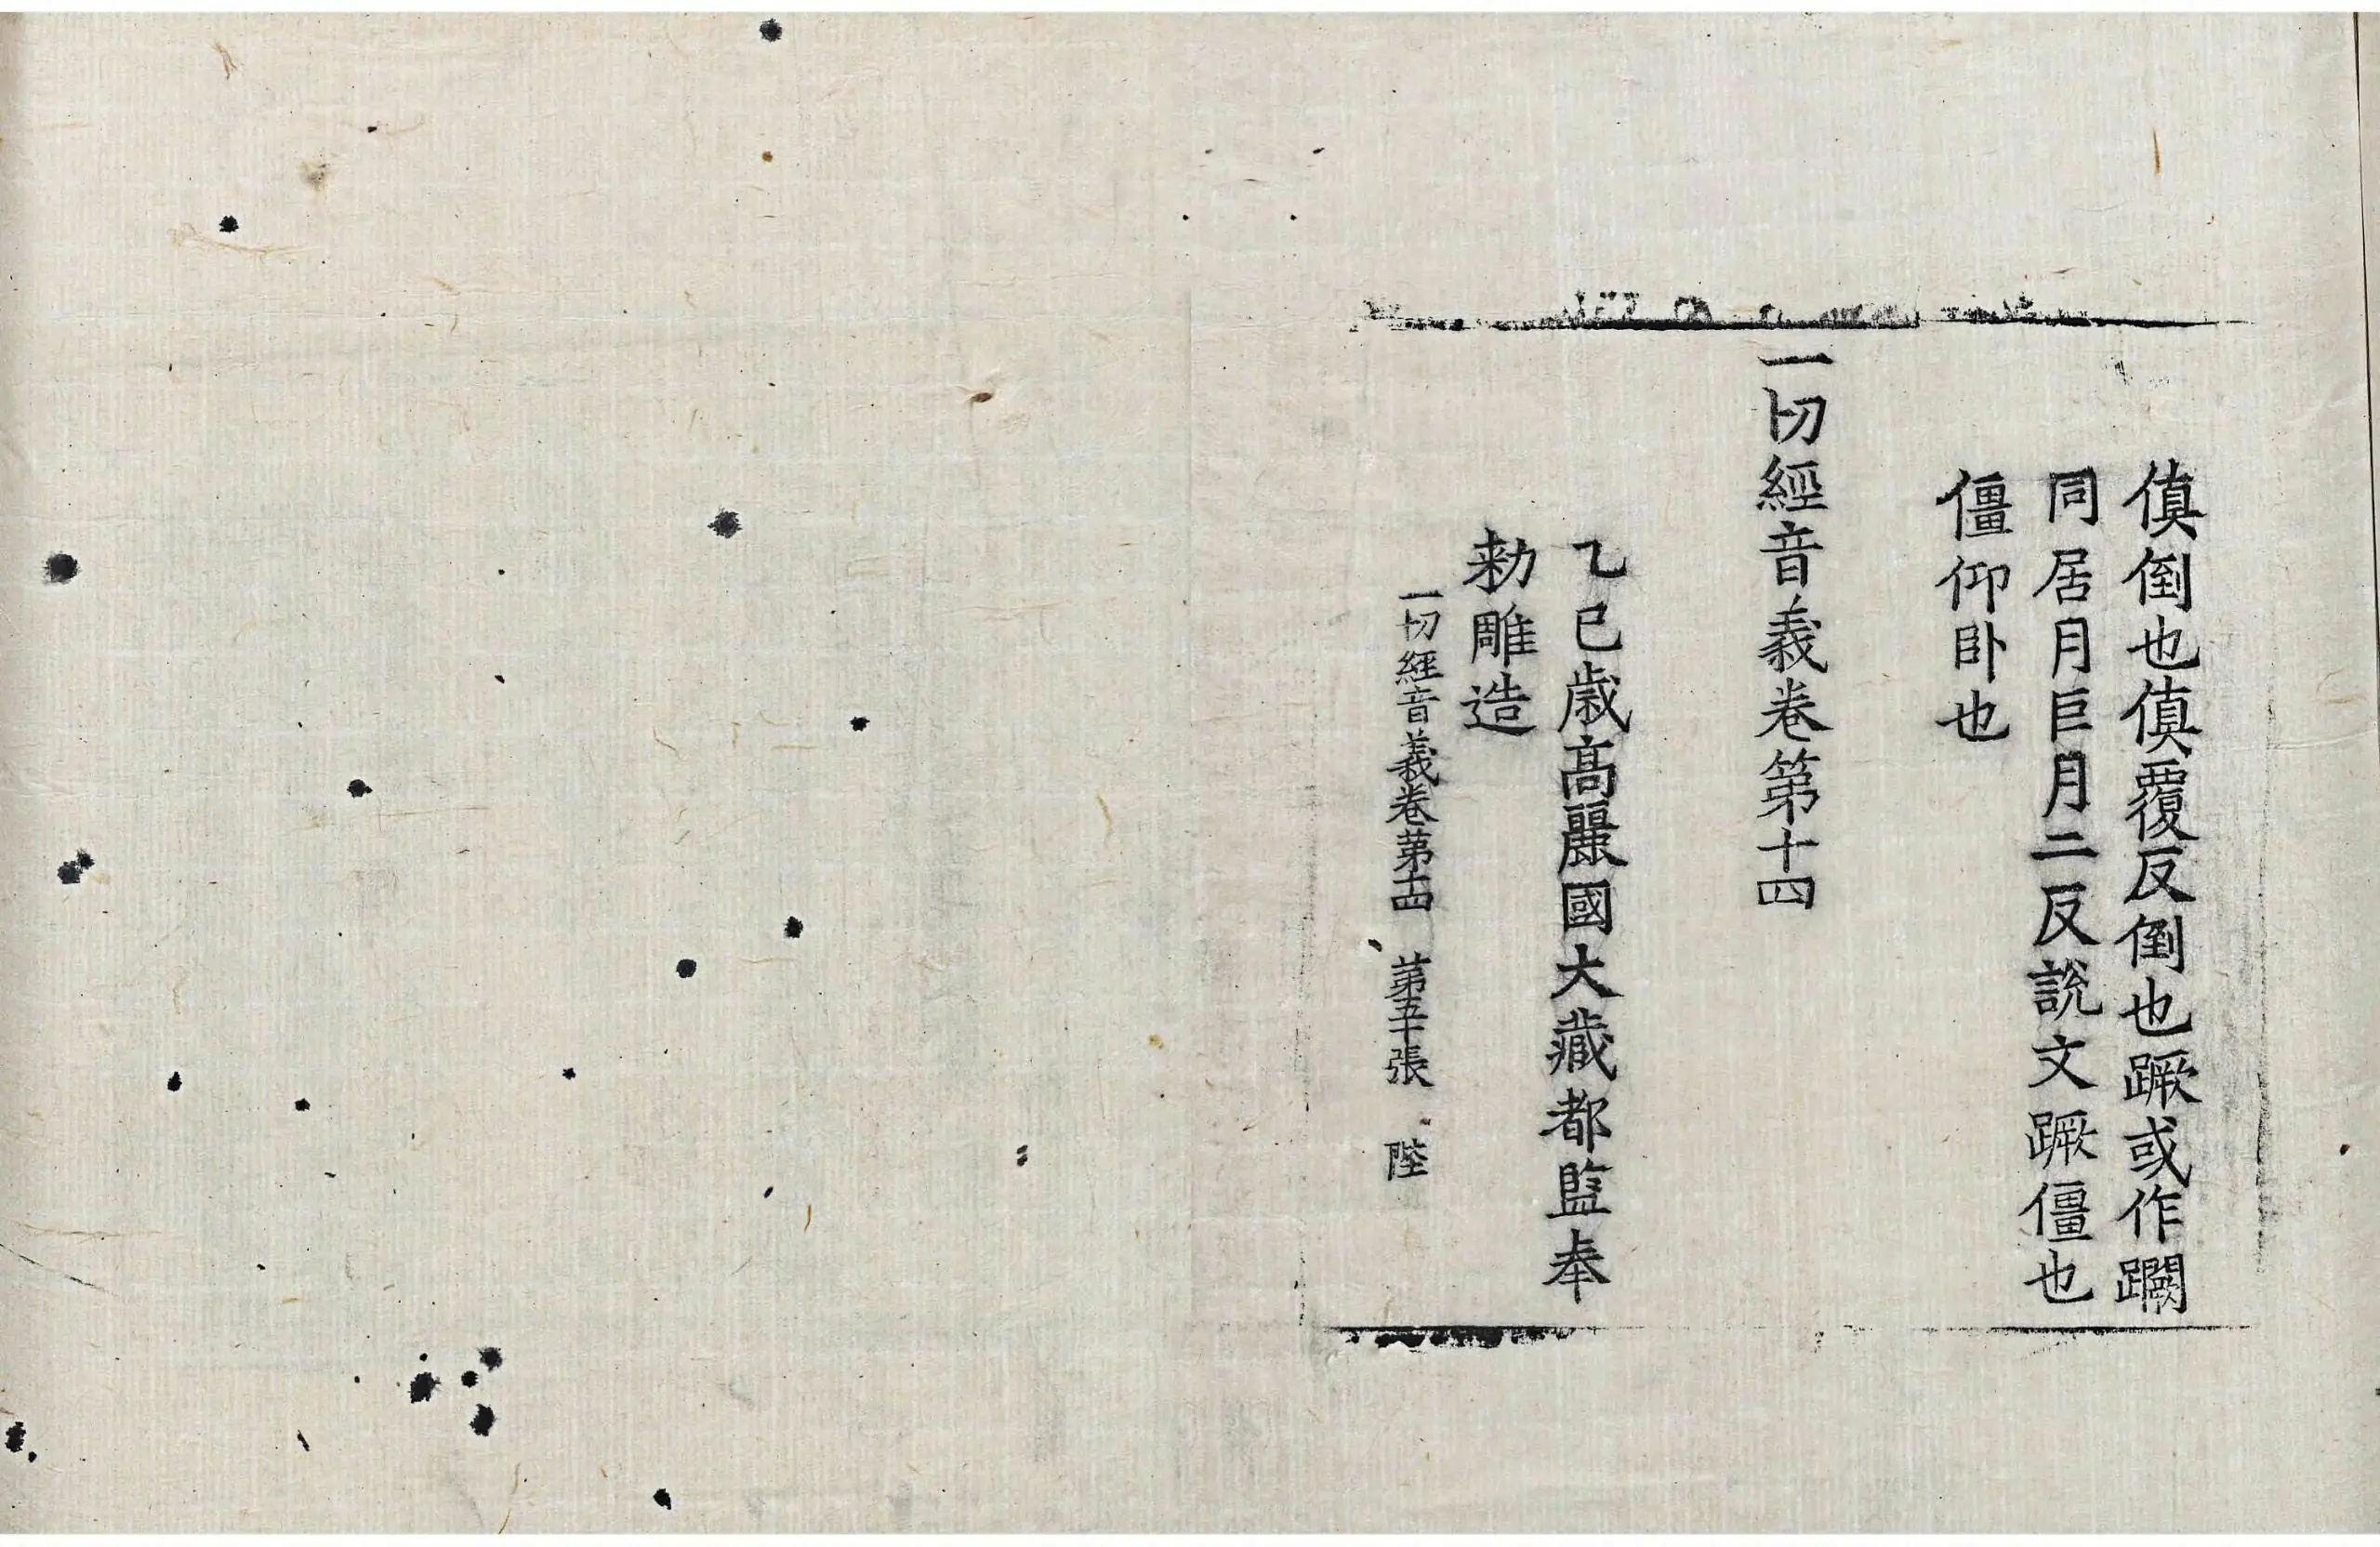 傎倒也傎覆反倒也蹶或作𨇮
同居月巨月二反說文蹶僵也
僵仰卧也
一切經音義卷第十四
乙巳歳高麗國大藏都監奉
勑雕造
一切經音義卷第十四 第五十張 陛